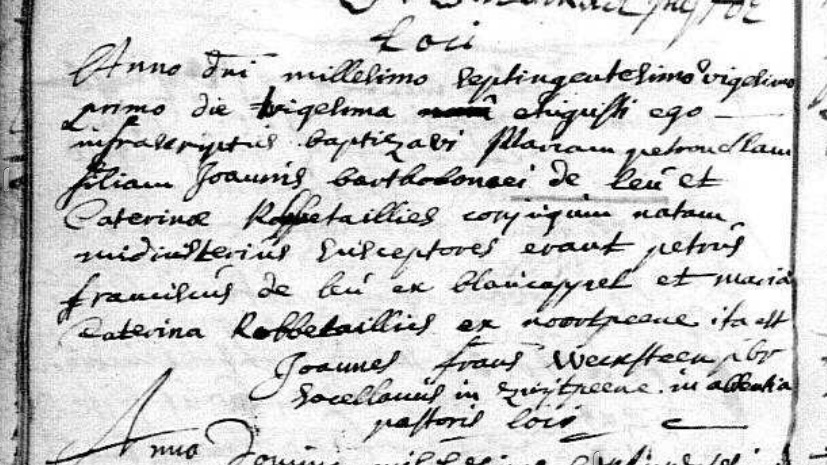 loci
Anno dni millesimo septingentesimo vigesimo
primo die vigesima Augusti ego
infrascriptus baptizavi Mariam petronellam
filiam Joannis bartholomei de leu et
Caterinæ Robbetaillies conjugum natam
susceptores erant petrus
franciscus de leu ex blancappel et maria
Caterina Robbetaillies ex noortpeene ita est
Joannes frans Weensteen pbr
sacellanus in zuijtpeene in absentia
pastoris loci
Anno Domini